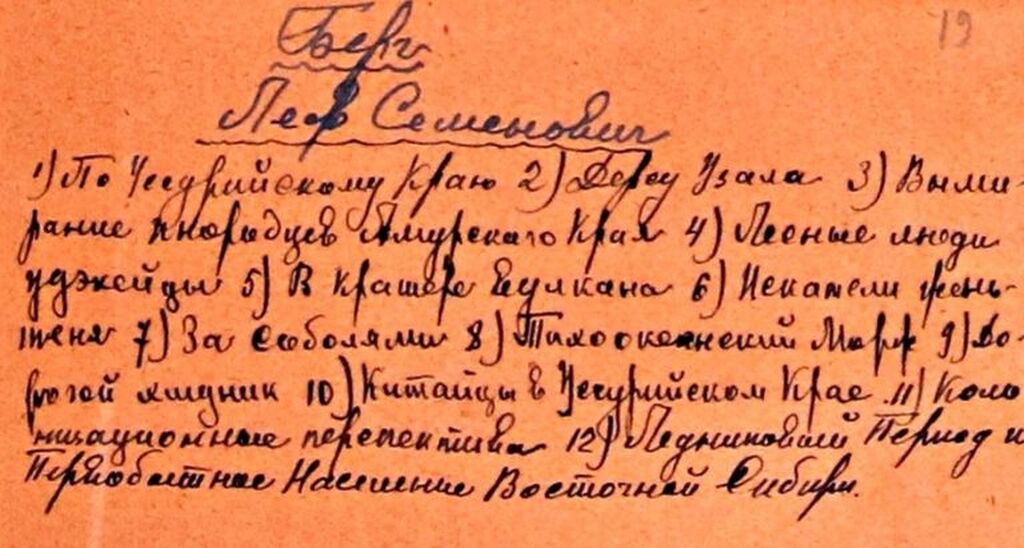 19
Берг
Лев Семенович
1) По Уссурийскому Краю 2) Дерсу Узала 3) Выми-
рание инородцев Амурского Края 4) Лесные люди
удэхейцы 5) В кратере вулкана 6) Искатели жень-
шеня 7) За соболями 8) Тихоокеанский Морж 9) До-
рогой хищник 10) Китайцы в Уссурийском Крае. 11) Коло
низационные перспективы 12) Ледниковый Период и
Первобытное Население Восточной Сибири.